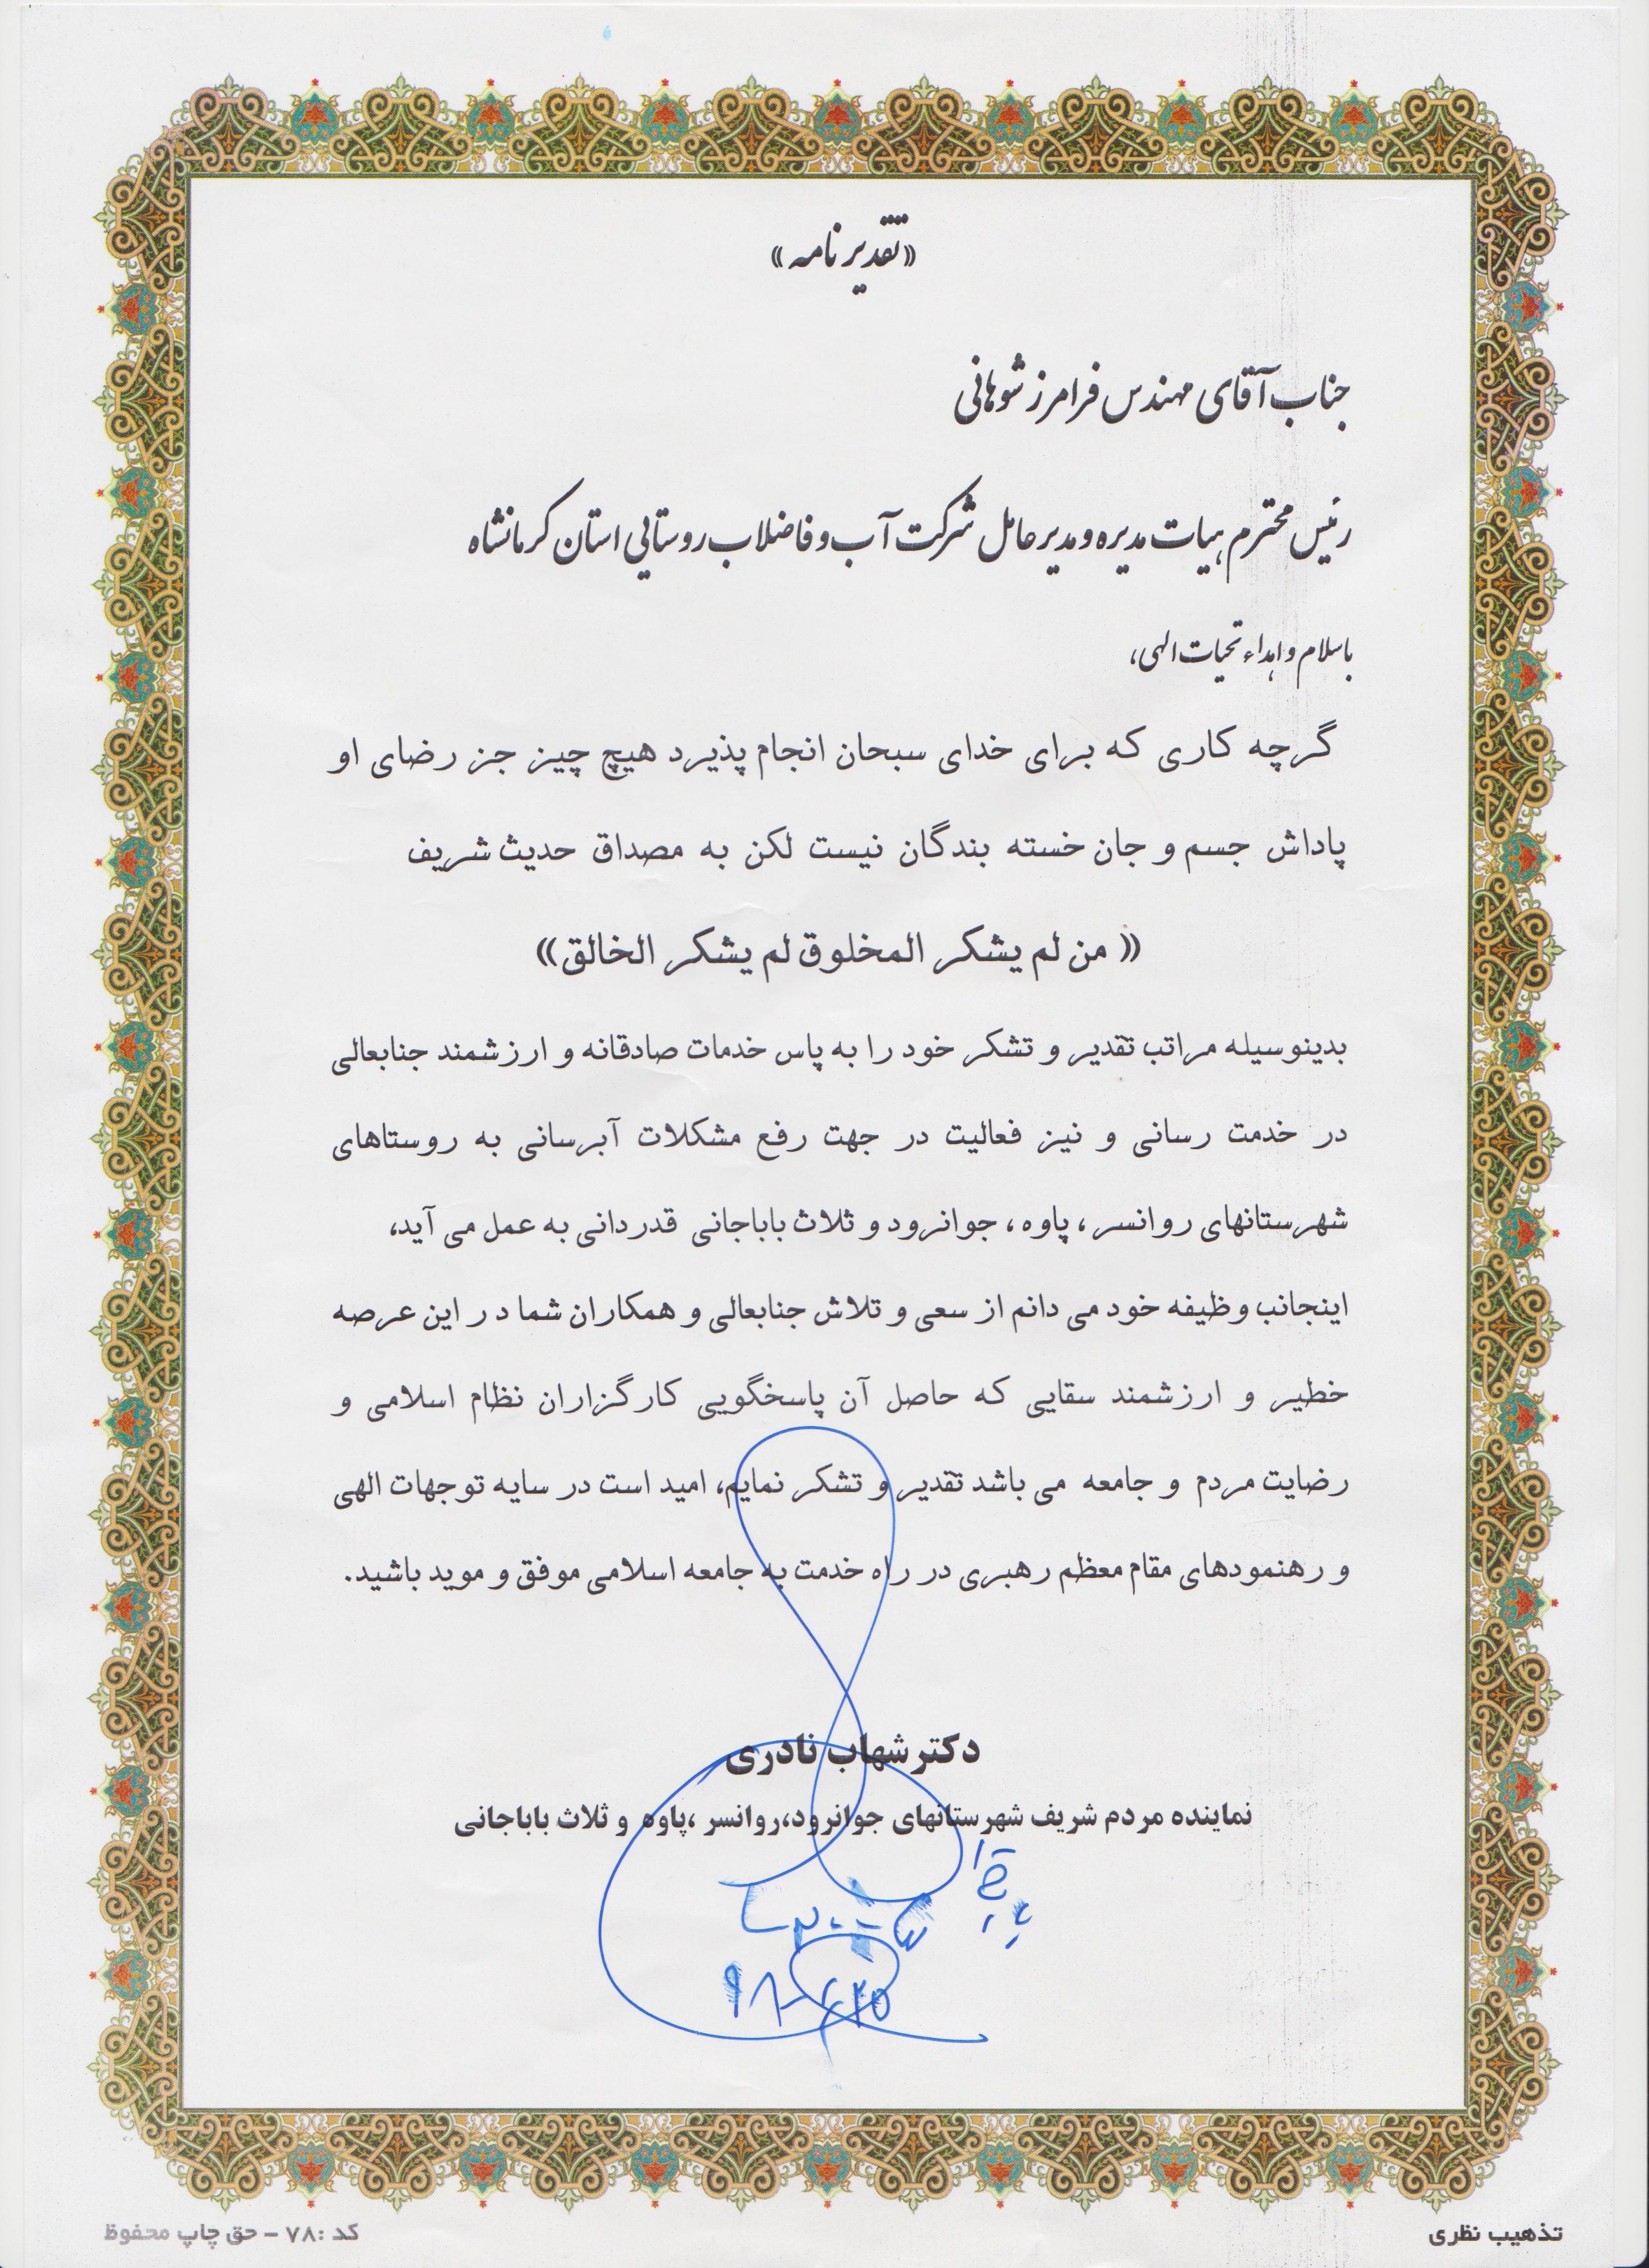 «تقدیر نامه»
جناب آقای مهندس فرامرز شوهانی
رئیس محترم هیات مدیره و مدیرعامل شرکت آب و فاضلاب روستایی استان کرمانشاه
باسلام و اهداء تحیات الهی،
گرچه کاری که برای خدای سبحان انجام پذیرد هیچ چیز جز رضای او
پاداش جسم و جان خسته بندگان نیست لکن به مصداق حدیث شریف
« من لم یشکر المخلوق لم یشکر الخالق»
بدینوسیله مراتب تقدیر و تشکر خود را به پاس خدمات صادقانه و ارزشمند جنابعالی
در خدمت رسانی و نیز فعالیت در جهت رفع مشکلات آبرسانی به روستاهای
شهرستانهای روانسر، پاوه، جوانرود و ثلاث باباجانی قدردانی به عمل می آید،
اینجانب وظیفه خود می دانم از سعی و تلاش جنابعالی و همکاران شما در این عرصه
خطیر و ارزشمند سقایی که حاصل آن پاسخگویی کارگزاران نظام اسلامی و
رضایت مردم و جامعه می باشد تقدیر و تشکر نمایم، امید است در سایه توجهات الهی
و رهنمودهای مقام معظم رهبری در راه خدمت به جامعه اسلامی موفق و موید باشید.
دکتر شهاب نادری
نماینده مردم شریف شهرستانهای جوانرود،روانسر ،پاوه و ثلاث باباجانی
تذهیب نظری
کد :۷۸ - حق چاپ محفوظ